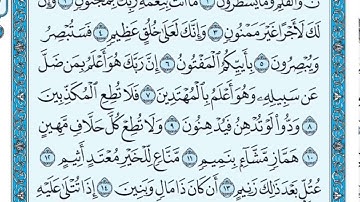 نٓ وَالْقَلَمِ وَمَا يَسْطُرُونَ ١ مَا أَنْتَ بِنِعْمَةِ رَبِّكَ بِمَجْنُونٍ ٢ وَإِنَّ
لَكَ لَأَجْرًا غَيْرَ مَمْنُونٍ ٣ وَإِنَّكَ لَعَلَىٰ خُلُقٍ عَظِيمٍ ٤ فَسَتُبْصِرُ
وَيُبْصِرُونَ ٥ بِأَييِّكُمُ الْمَفْتُونُ ٦ إِنَّ رَبَّكَ هُوَ أَعْلَمُ بِمَنْ ضَلَّ
عَنْ سَبِيلِهِ وَهُوَ أَعْلَمُ بِالْمُهْتَدِينَ ٧ فَلَا تُطِعِ الْمُكَذِّبِينَ
٨ وَدُّوا لَوْ تُدْهِنُ فَيُدْهِنُونَ ٩ وَلَا تُطِعْ كُلَّ حَلَّافٍ مَهِينٍ
١٠ هَمَّازٍ مَشَّاءٍ بِنَمِيمٍ ١١ مَنَّاعٍ لِلْخَيْرِ مُعْتَدٍ أَثِيمٍ ١٢
عُتُلٍّ بَعْدَ ذَٰلِكَ زَنِيمٍ ١٣ أَنْ كَانَ ذَا مَالٍ وَبَنِينَ ١٤ إِذَا تُتْلَىٰ عَلَيْهِ